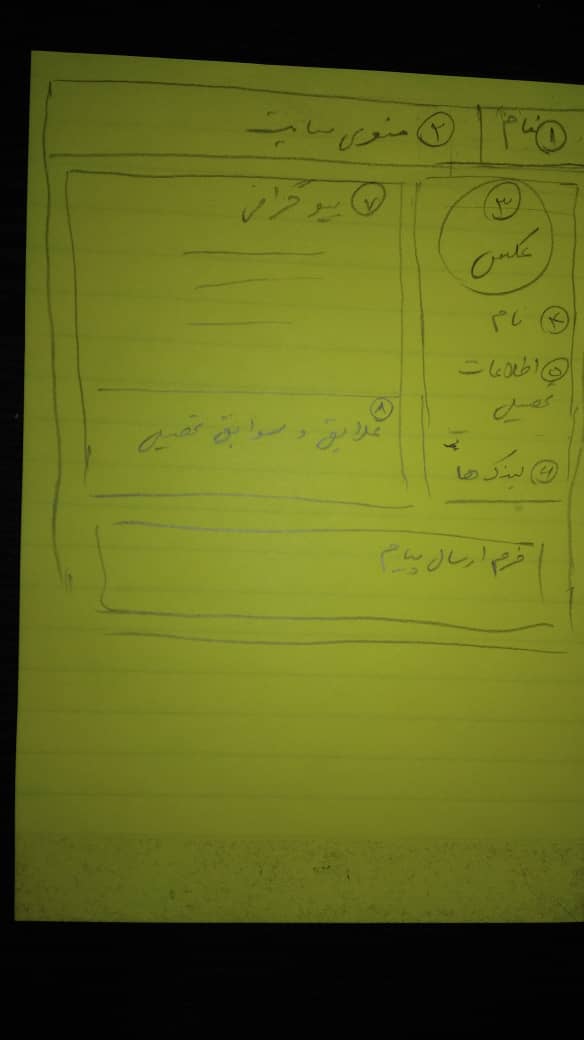 ۱ نام
۲ منوی سایت
۳
عکس
۴ نام
۵ اطلاعات
تحصیلی
۶ لینک ها
۷ بیوگرافی
۸
علایق و سوابق تحصیلی
فرم ارسال پیام